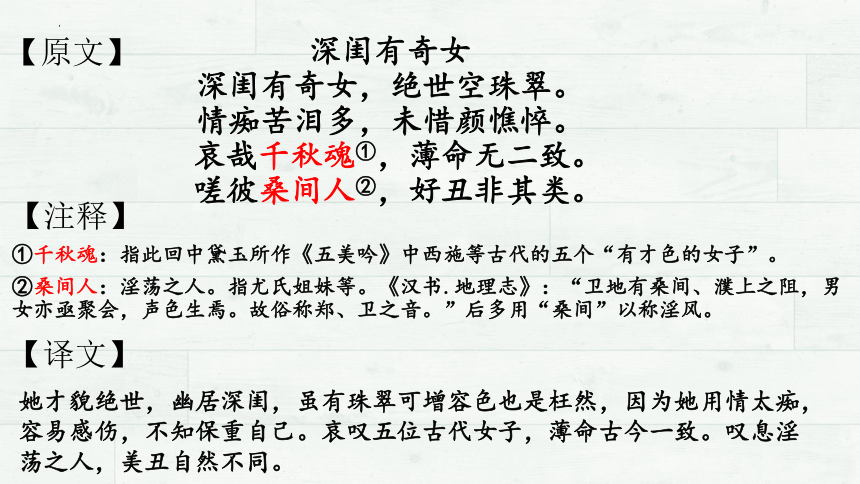 【原文】
深闺有奇女
深闺有奇女，绝世空珠翠。
情痴苦泪多，未惜颜憔悴。
哀哉千秋魂①，薄命无二致。
嗟彼桑间人②，好丑非其类。
【注释】
①千秋魂：指此回中黛玉所作《五美吟》中西施等古代的五个“有才色的女子”。
②桑间人：淫荡之人。指尤氏姐妹等。《汉书.地理志》：“卫地有桑间、濮上之阻，男
女亦亟聚会，声色生焉。故俗称郑、卫之音。”后多用“桑间”以称淫风。
【译文】
她才貌绝世，幽居深闺，虽有珠翠可增容色也是枉然，因为她用情太痴，
容易感伤，不知保重自己。哀叹五位古代女子，薄命古今一致。叹息淫
荡之人，美丑自然不同。